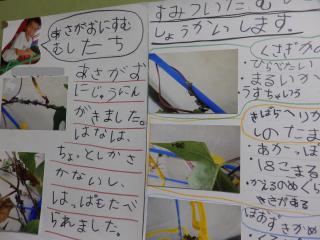 あさがおにすむ
むしたち
あさがお
にじゅうにん
がきました。
はなは、
ちょっとしかさ
かないし、
はっぱもたべ
られました。
すみついたむし
しょうかいします。
くさぎか
・ひらべたい
・まるいか
・うすちゃいろ
きばらヘリか
しのたま
・あかっぽ
・18こまる
・かえるのめくら
きさがある
ほおずきかめ